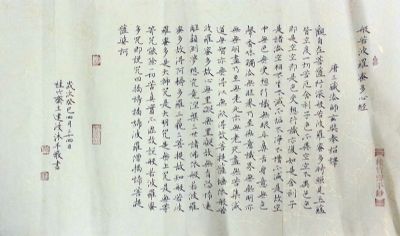 般若波羅蜜多心經
唐三藏法師玄奘奉詔譯
觀自在菩薩行深般若波羅蜜多時照見五蘊
皆空度一切苦厄舍利子色不異空空不異色色
即是空空即是色受想行識亦復如是舍利子
是諸法空相不生不滅不垢不淨不增不減是故空
中無色無受想行識無眼耳鼻舌身意無色
聲香味觸法無眼界乃至無意識界無無明亦
無無明盡乃至無老死亦無老死盡無苦集滅
道無智亦無得以無所得故菩提薩埵依般若
波羅蜜多故心無罣礙無罣礙故無有恐怖遠
離顛倒夢想究竟涅槃三世諸佛依般若波羅
蜜多故得阿耨多羅三藐三菩提故知般若波
羅蜜多是大神咒是大明咒是無上咒是無等
等咒能除一切苦真實不虛故說般若波羅蜜
多咒即說咒曰揭諦揭諦波羅揭諦波羅僧揭諦菩提
薩婆訶
歲次癸巳四月二十四日
齋主連波沐手敬書